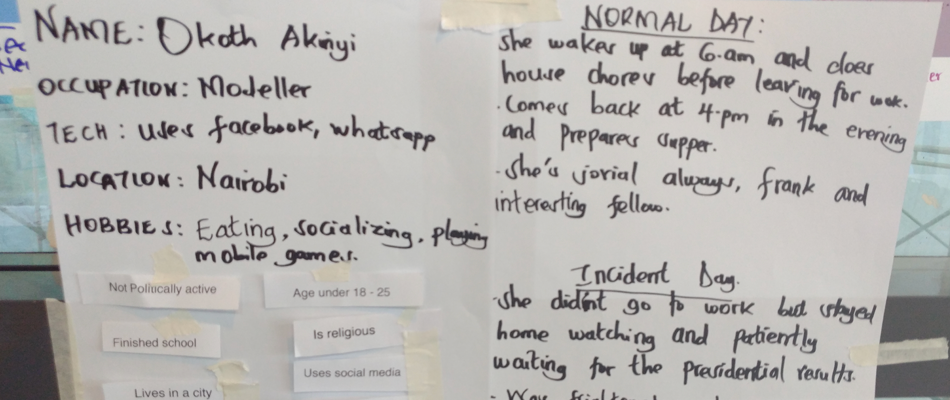 NAME: Okoth Akinyi
OCCUPATION: Modeller
TECH: uses facebook, whatsapp
LOCATION: Nairobi
HOBBIES: Eating, socializing, playing
mobile games.
Not Politically active
Age under 18 - 25
Finished school
Is religious
Uses social media
Lives in a city
NORMAL DAY:
she wakes up at 6.am and does
house chores before leaving for work.
. Comes back at 4.pm in the evening
and prepares supper.
. she's jovial always, frank and
interesting fellow.
Incident Day.
. she didn't go to work but stayed
home watching and patiently
waiting for the presidential results.
- Was